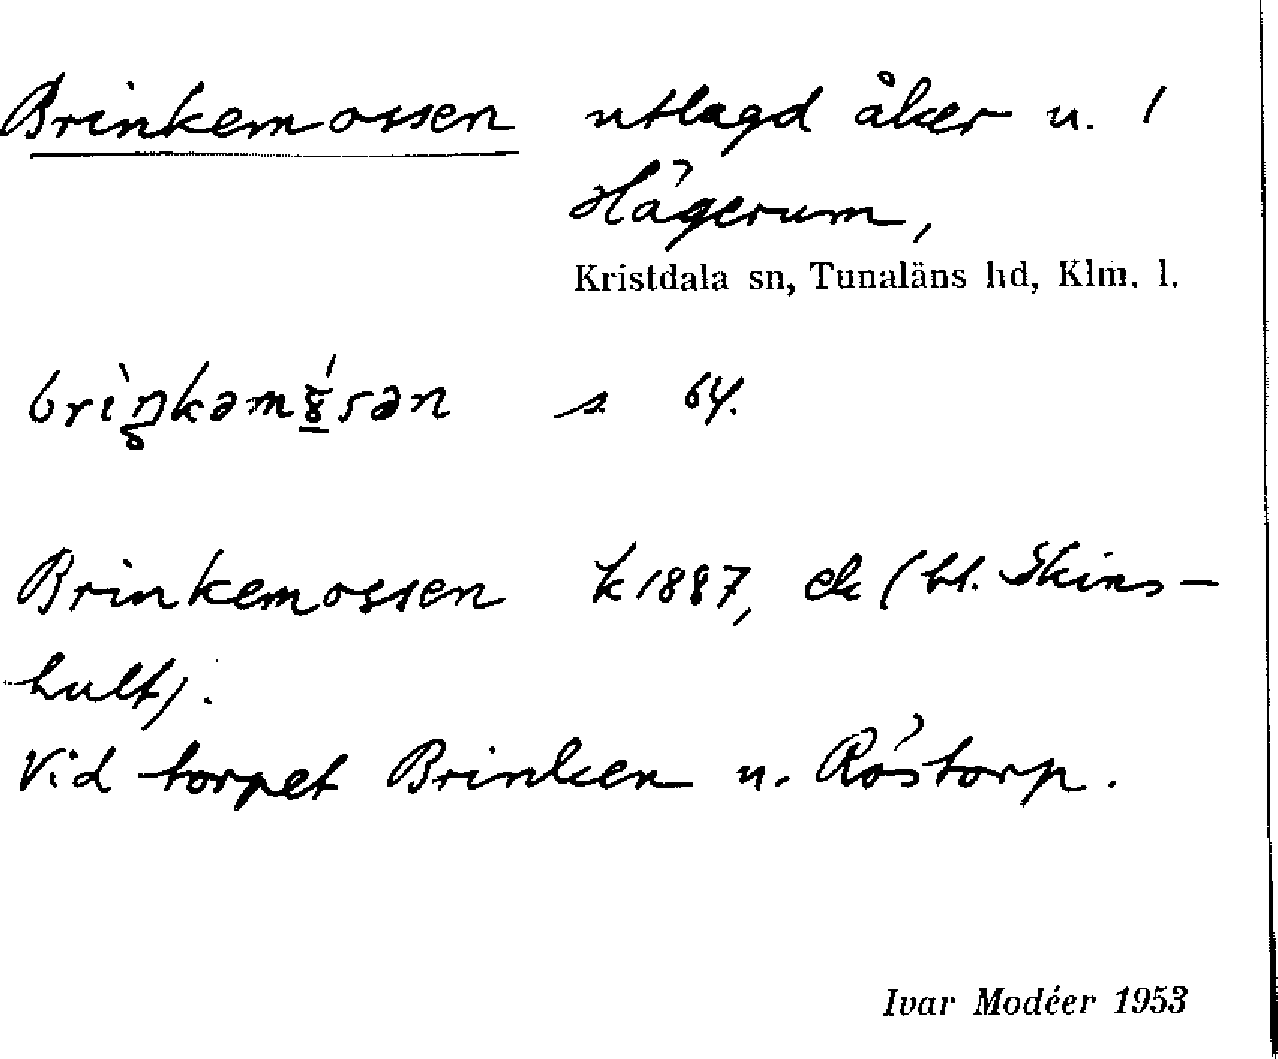 Brinkemossen utlagd åker u. 1
Hägerum,
Kristdala sn, Tunaläns hd, Klm. l.
s 64.
Brinkemossen k 1887, ek (bl. Skins-
hult).
Vid torpet Brinken u. Röstorp.
Ivar Modéer 1953